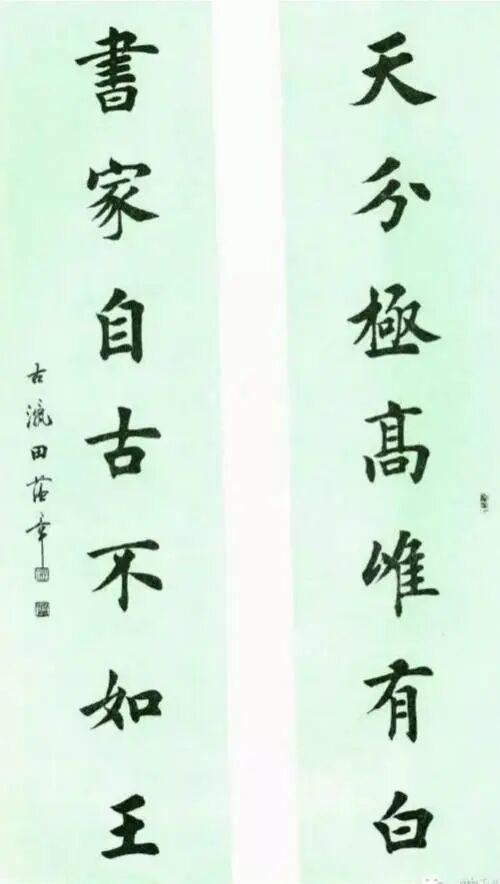 天分極高唯有白
書家自古不如王
古瀛田蘊章